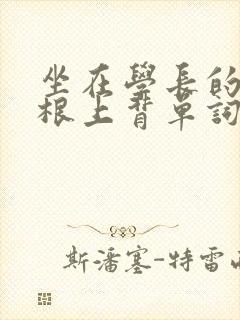 坐在學長的
根上背單詞
斯潘塞-特雷